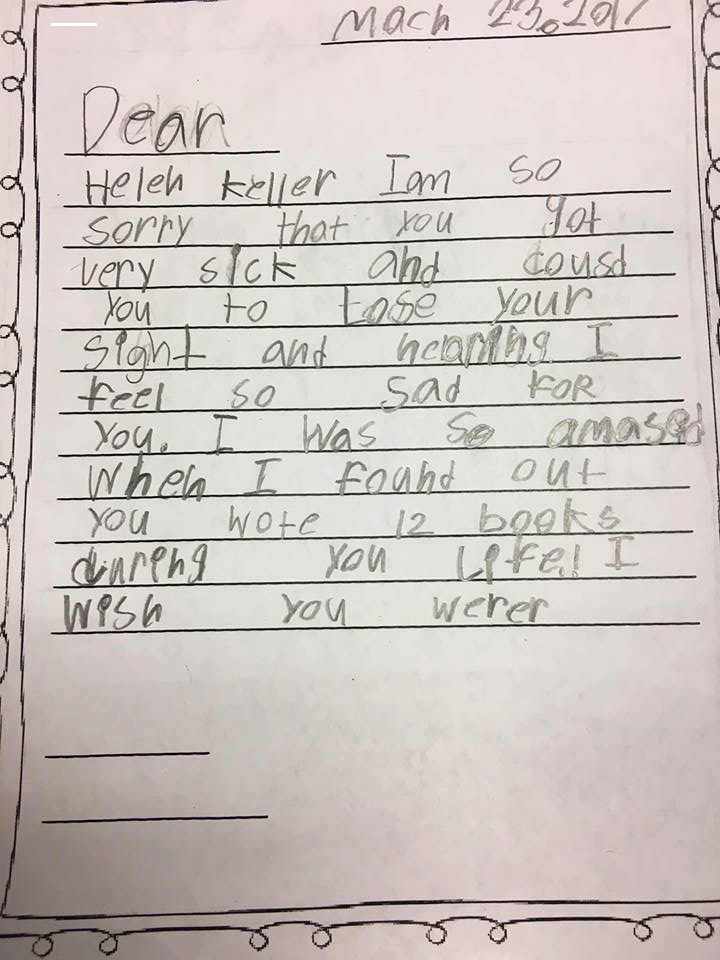 Mach 23.2017
Dear
Helen Keller I am so
sorry that you got
very sick and cousd
you to Lose your
Sight and hearing I
feel so sad FOR
you. I was so amased
When I found out
you wote 12 books
dureng you Life! I
Wish you werer